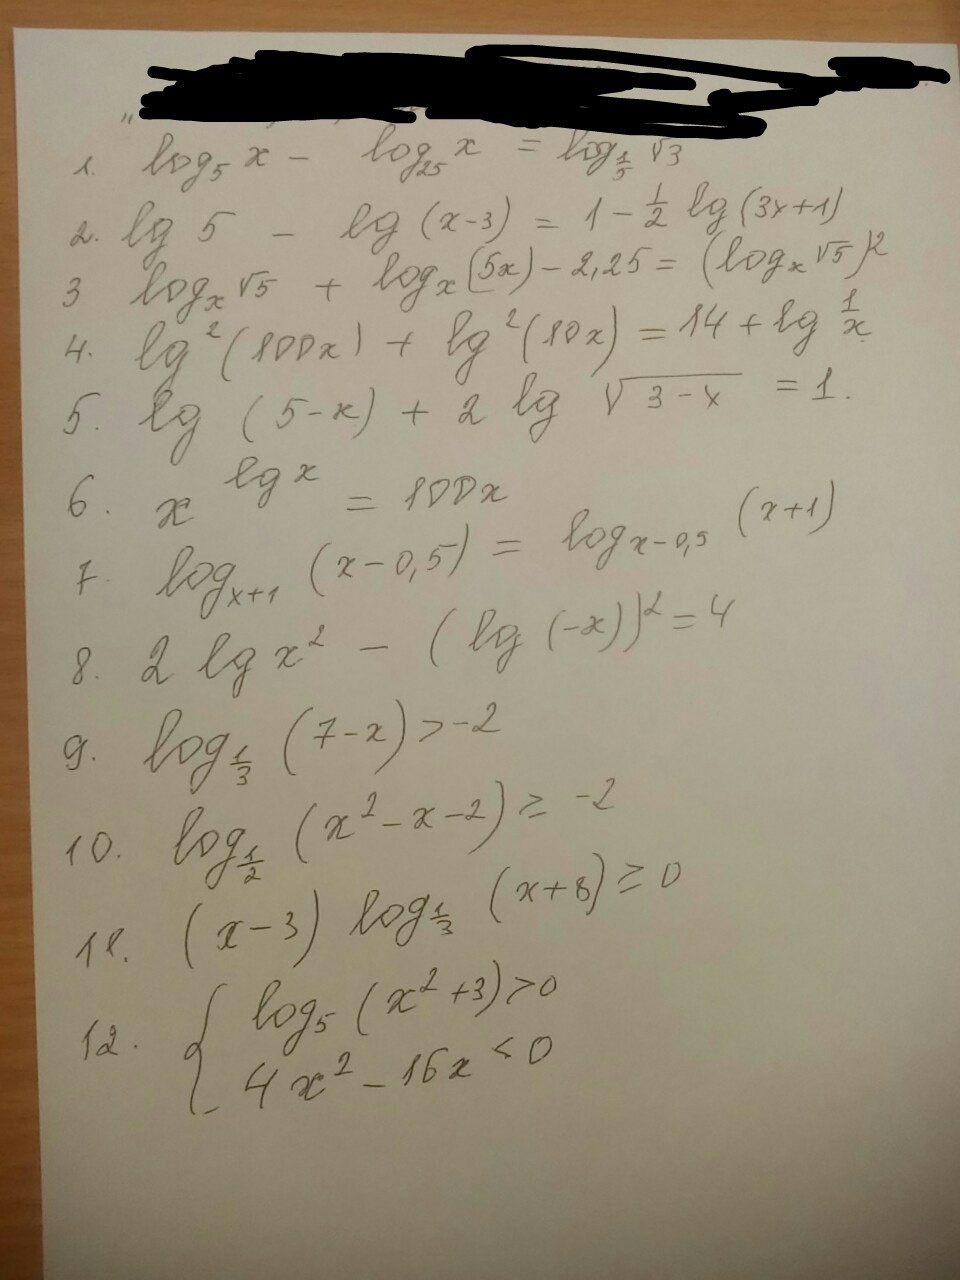 1. log₅ x − log₂₅ x = log_{1/5} √3
2. lg 5 − lg (x−3) = 1 − 1/2 lg (3x+1)
3 logₓ √5 + logₓ (5x) − 2,25 = (logₓ √5)²
4. lg² (100x) + lg² (10x) = 14 + lg 1/x
5. lg (5−x) + 2 lg √(3−x) = 1.
6. x^{lg x} = 100x
7. log_{x+1} (x−0,5) = log_{x−0,5} (x+1)
8. 2 lg x² − (lg (−x))² = 4
9. log_{1/3} (7−x) > −2
10. log_{1/2} (x²−x−2) ≥ −2
11. (x−3) log_{1/3} (x+8) ≥ 0
12. { log₅ (x²+3) > 0
4x² − 16x < 0